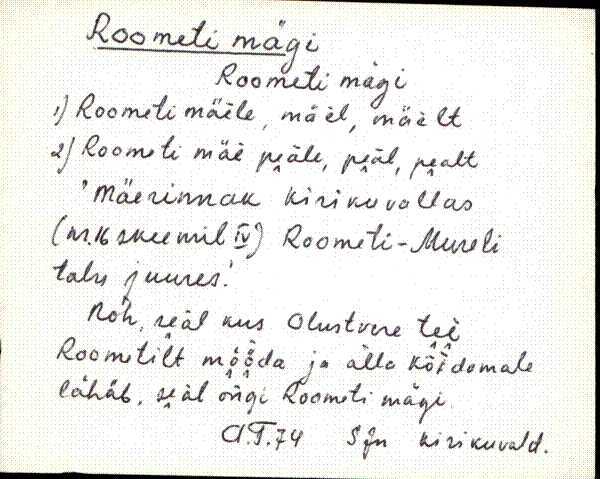 Roometi mägi
Roometi mägi
1) Roometi mäele, mäel, mäelt
2) Roometi mäe peäle, peäl, pealt
'Mäerinnak Kirikuvallas
(nr. 16 skeemil IV) Roometi-Mureli
talu juures.'
Noh, seäl kus Olustvere tee
Roometilt mööda ja alla Kõidamale
lähäb, seäl õngi Roometi mägi.
A.T.74 SJn kirikuvald.